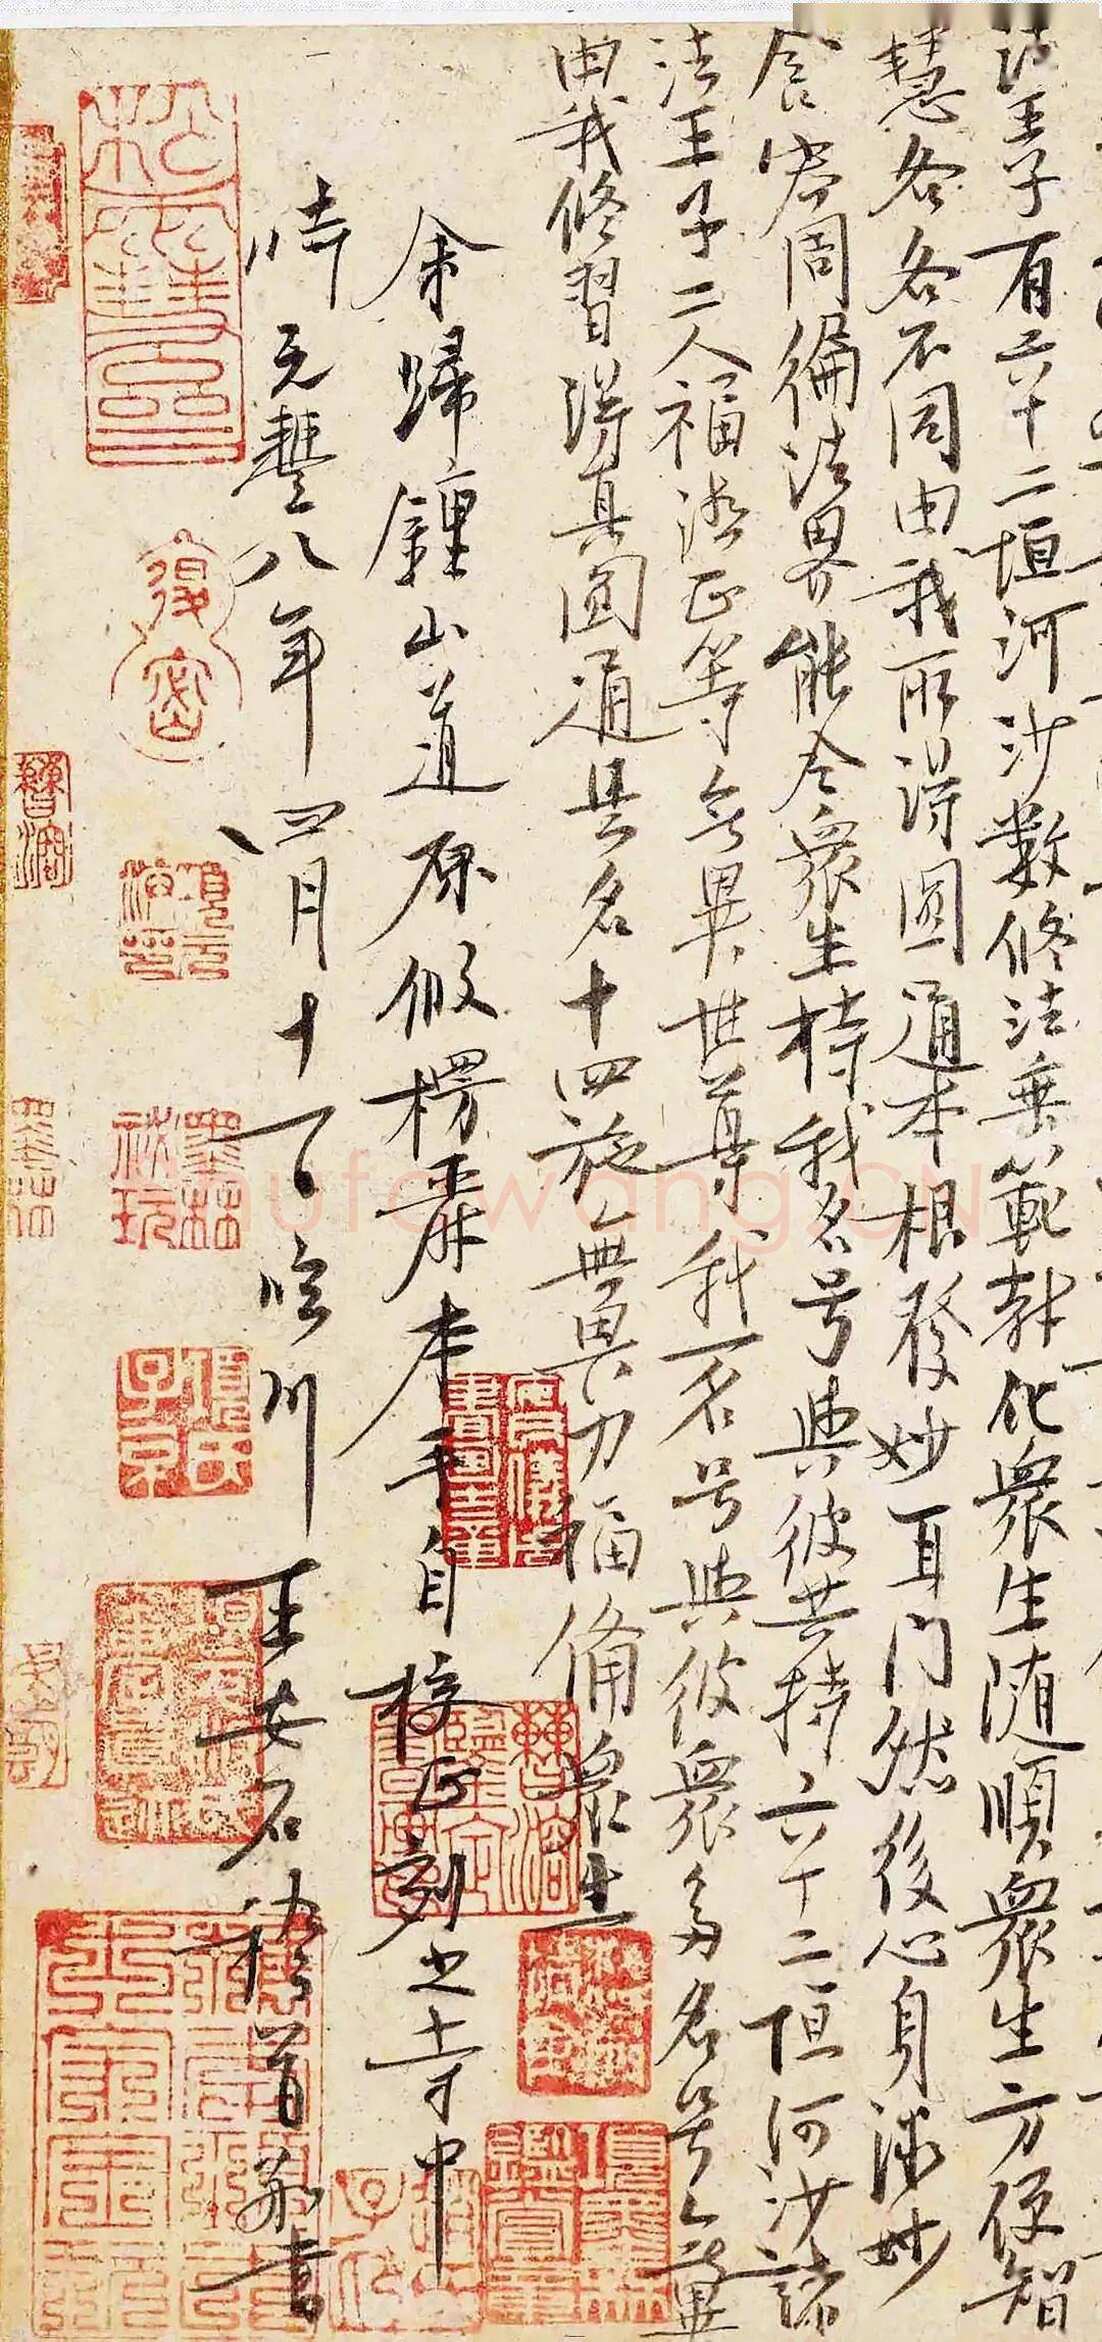 法王子有六十二恒河沙數修法垂範教化眾生随順眾生方便智
慧各各不同由我所得圓通本根發妙耳門然後心身微妙
含容周徧法界能令眾生持我名号與彼共持六十二恒河沙諸
法王子二人福德正等無異世尊我一名号與彼眾多名号無異
由我修習得真圓通是名十四施無畏力福備眾生
余歸鍾山道原假楞嚴本手自校正刻之寺中
時元豐八年四月十一日臨川王安石稽首敬書
項元汴印
墨林祕玩
項墨林鑑賞章